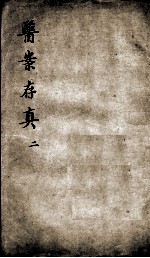 醫案存真二